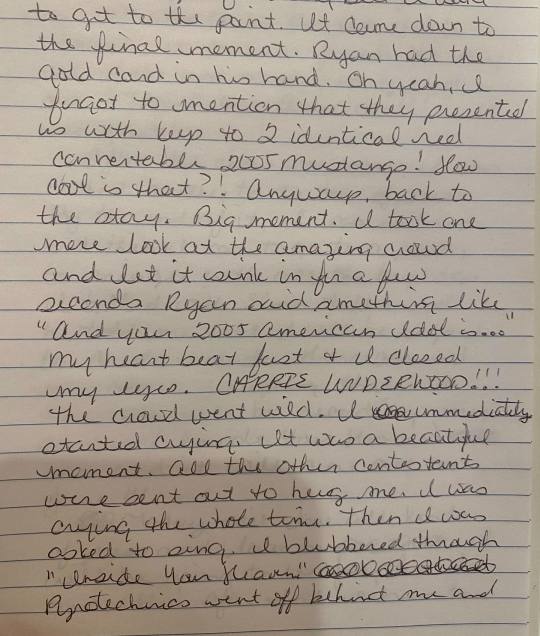 to get to the point. It came down to
the final moment. Ryan had the
gold card in his hand. Oh yeah, I
forgot to mention that they presented
us with keys to 2 identical red
convertable 2005 Mustangs! How
cool is that?!! Anyways, back to
the story. Big moment. I took one
more look at the amazing crowd
and let it sink in for a few
seconds Ryan said something like
"And your 2005 American Idol is..."
My heart beat fast & I closed
my eyes. CARRIE UNDERWOOD!!!
The crowd went wild. I immediately
started crying. It was a beautiful
moment. All the other contestants
were sent out to hug me. I was
crying the whole time. Then I was
asked to sing. I blubbered through
"Inside Your Heaven"
Pyrotechnics went off behind me and